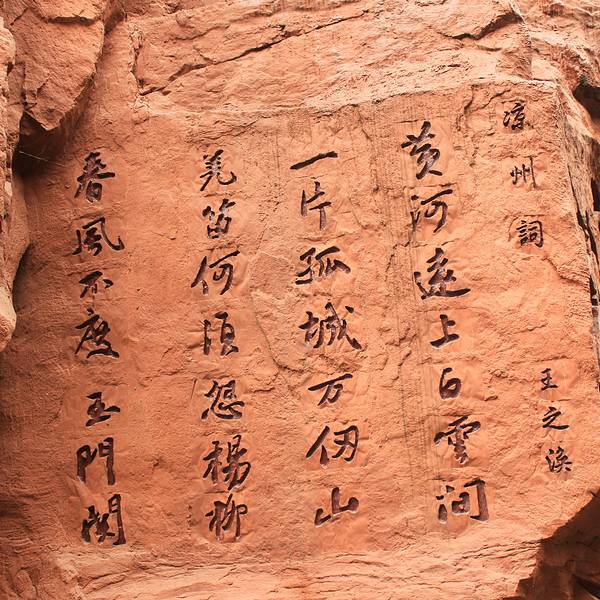 凉州词
王之涣
黄河遠上白雲间
一片孤城万仞山
羌笛何须怨楊柳
春風不度玉門関